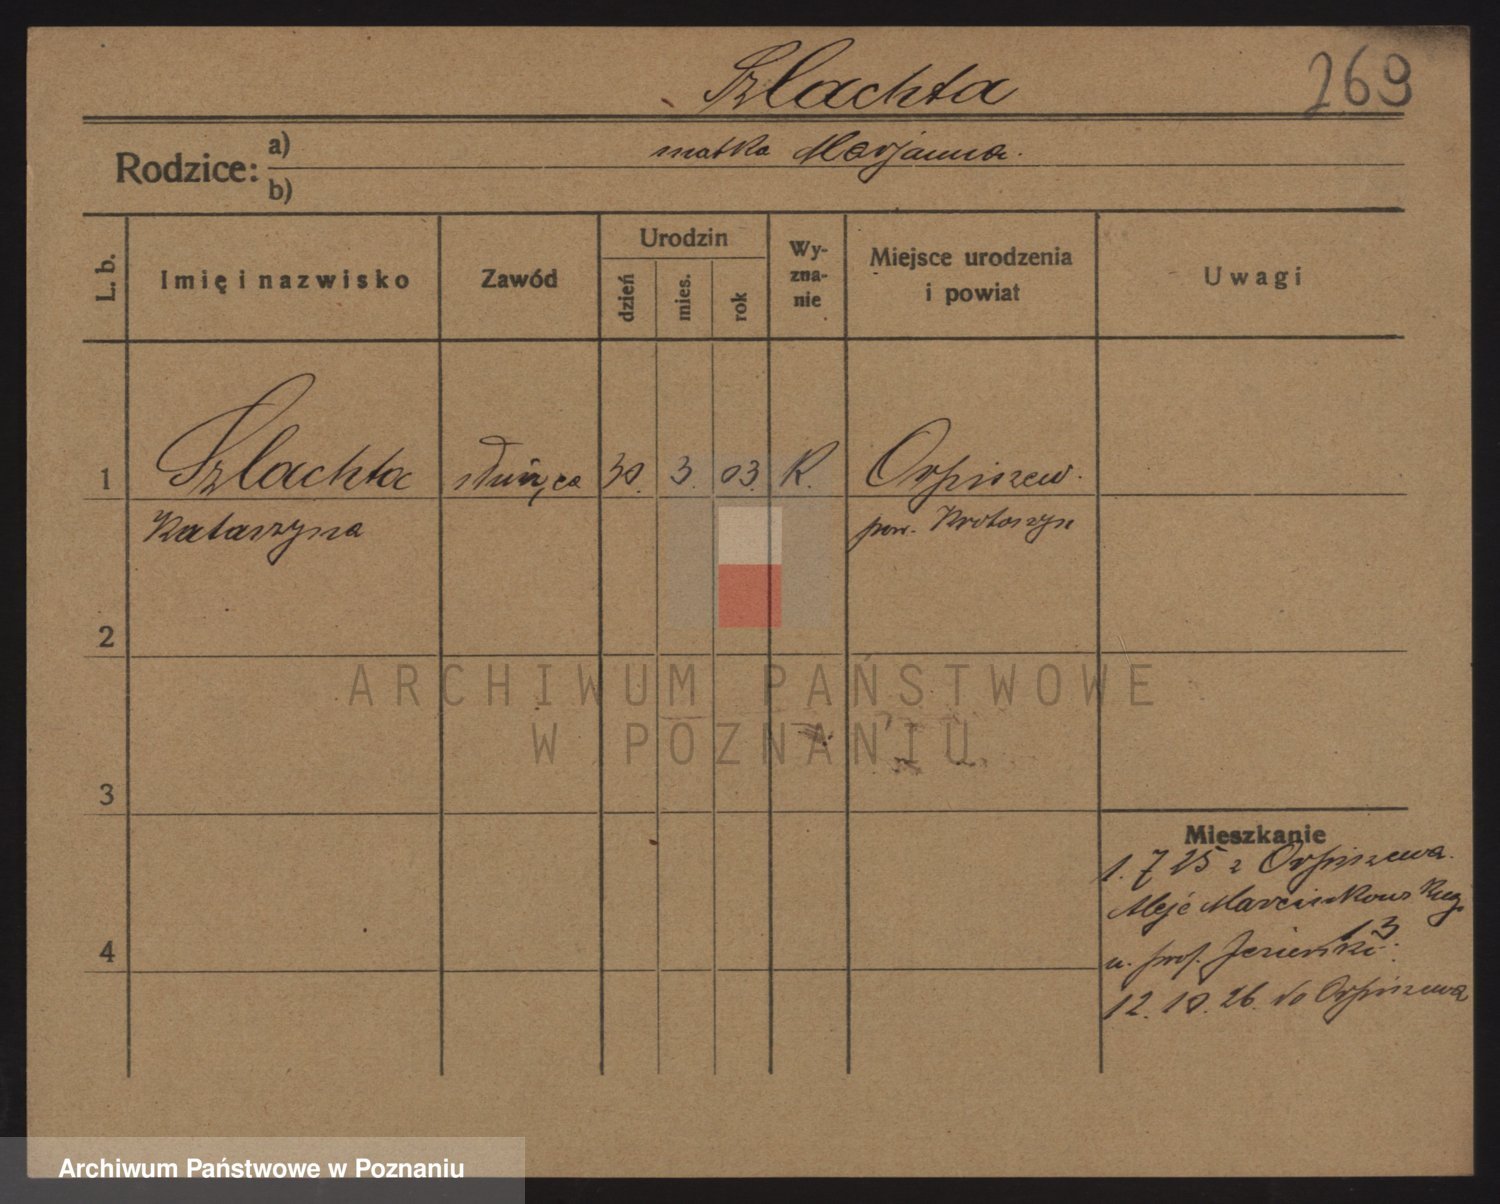 Szlachta
269
Rodzice:
a) matka Marjanna.
b)
L. b.
Imię i nazwisko
Zawód
Urodzin
dzień
mies.
rok
Wy-
zna-
nie
Miejsce urodzenia
i powiat
Uwagi
1 Szlachta służąca 30. 3. 03. K. Orpiszew.
Katarzyna pow. Krotoszyn
2
3
4
Mieszkanie
1. 7 25 z Orpiszewa.
Aleje Marcinkows
13
u. prof.
12. 10. 26. do Orpiszewa
ARCHIWUM PAŃSTWOWE
W POZNANIU
Archiwum Państwowe w Poznaniu